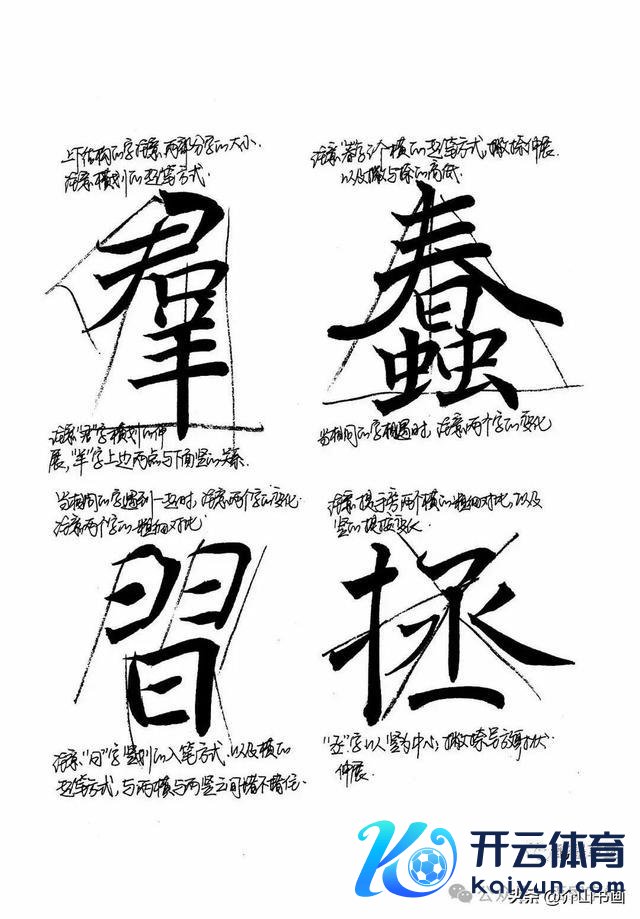 上下结构的字注意两部分字的大小.
注意横划的起笔方式.
羣
注意"君"字横划的伸
展,"羊"字上边两点与下面竖的关系.
注意"春"字三个横的起笔方式,撇捺伸展.
以及撇与捺的高低.
蠢
当相同的字相遇时,注意两个字的变化
当相同的字遇到一起时,注意两个字的变化.
注意两个字的粗细对比.
習
注意"日"字竖划的入笔方式.以及横的
起笔方式,与两横与两竖之间搭不搭住.
注意提手旁两个横的粗细对比,以及
竖的提按变化.
拯
"丞"字以竖为中心;撇捺呈放射状
伸展.
开云体育
Kaiyun.com
公众
头条 @介山书画